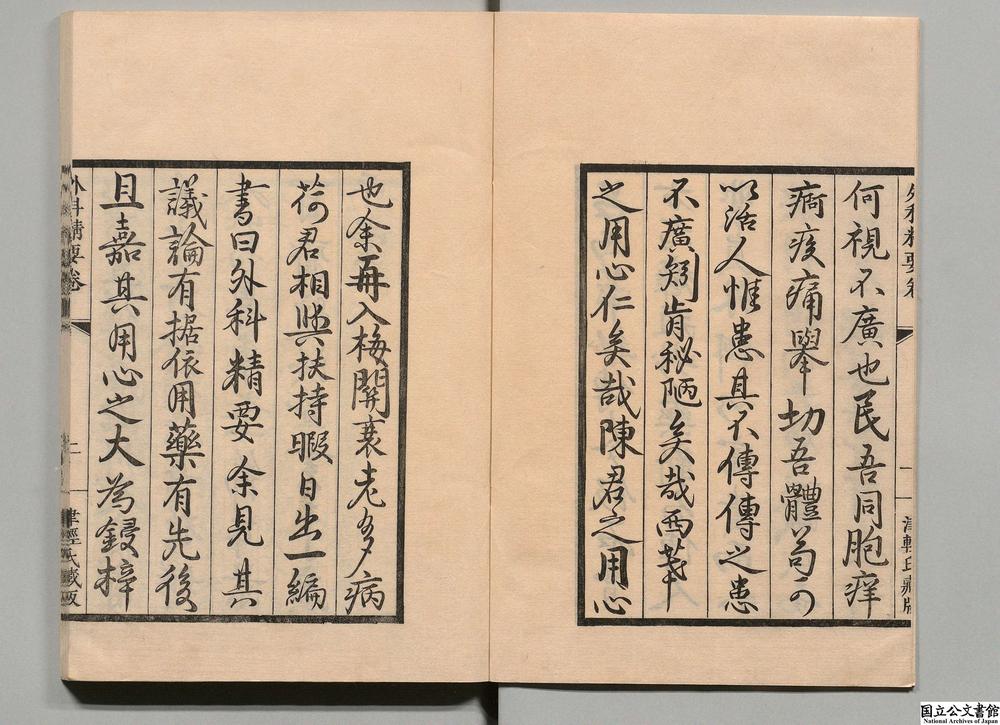 外科精要卷 一 津輕氏藏版
何視不廣也民吾同胞痒
痾疾痛舉切吾體苟可
以活人惟患其不傳傳之患
不廣矧肯秘陋矣哉西
之用心仁矣哉陳君之用心
也余再入梅開衰老多病
荷君相與扶持暇日出一編
書曰外科精要余見其
議論有据依用藥有先後
且嘉其用心之大為鋟梓
外科精要卷 津輕氏藏版
国立公文書館
National Archives of Japan